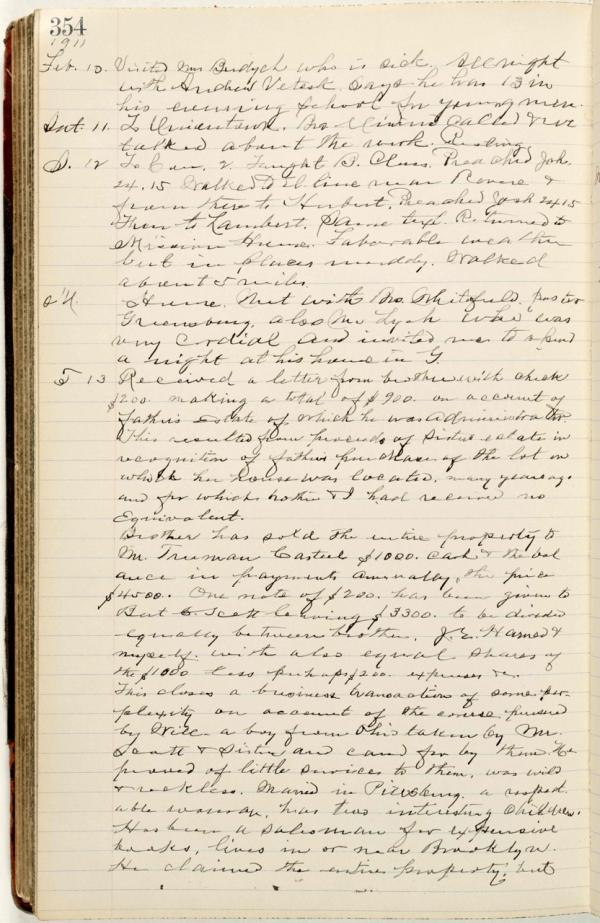 354
1911
Feb. 10. Visited Mrs Burdych who is sick. All night
with Andrew Vetesk. Says he has 13 in
his evening school for young men.
Sat. 11. To Uniontown. Bro called & we
talked about the work. Resting
S. 12 To Taught B. Class. Preached Josh.
24.15 Walked to line near Rowes &
from there to Herbert, Preached Josh 24 15
Then to Lambert. Same text. Returned to
Mission House. Favorable weather
but in places muddy. Walked
about 5 miles.
Home. Met with Bro. Whitfield, pastor
Greensburg, also Mr Lysh who was
very cordial and invited me to spend
a night at his house in G.
T 13 Received a letter from brother with check
$200. making a total of $900. on account of
father's estate of which he was Administrator.
This resulted from proceeds of Sister's estate in
recognition of father's purchase of the lot on
which her house was located, many years ago
and for which brother & I had received no
Equivalent.
Brother has sold the entire property to
Mr. Truman Casteel $1000. cash & the bal
ance in payments annually, the price
$4500. One note of $200. has been given to
Bert C. Scott leaving $3300. to be divided
equally between brother, J. E. Harned &
myself. with also equal shares of
the $1000 less perhaps $200. expenses &c.
This closes a business transaction of some per-
plexity on account of the course pursued
by a boy from Ohio taken by Mr.
Scott & Sister and cared for by them. He
proved of little services to them, was wild
& reckless. Married in Pittsburg, a respect
able woman, has two interesting children.
Has been a salesman for expensive
books, lives in or near Brooklyn.
He claimed the entire property, but